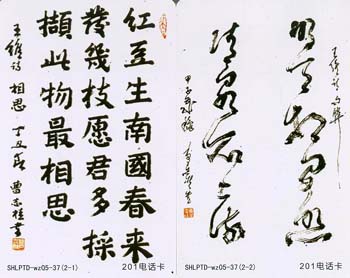 红豆生南國春来
發幾枝愿君多採
擷此物最相思
王維詩 相思 丁丑
SHLPTD-wz05-37(2-1) 201电话卡
明月松間照
清泉石上流
SHLPTD-wz05-37(2-2) 201电话卡